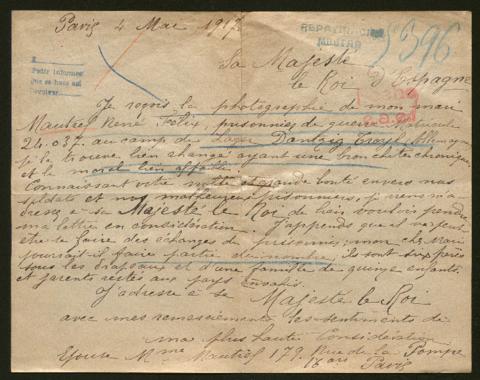 Paris 4 Mai 1917
REPATRIACION
5396
Sa Majesté
le Roi d'Espagne
Pedir informes
que se hace asi
Je reçois la photographie de mon mari
René Félix, prisonnier de guerre, Matricule
24.037. au camp de Lager Dantzig Troyl (Allemagne)
je le trouve bien changé ayant une bronchite chronique,
et le moral bien affaibli.
Connaissant votre noble et grande bonté envers nos
soldats et nos malheureux prisonniers, je viens m'a
dresser à sa Majesté le Roi de bien vouloir prendre
ma lettre en considération. J'apprends que il va peut
être se faire des échanges de prisonniers; mon cher Mari
pourrait-il faire partie du nombre, ils sont six frères
sous les drapeaux et d'une famille de quinze enfants,
et parents restés aux pays envahis.
J'adresse à sa Majesté le Roi
avec mes remerciements les sentiments de
ma plus haute Considération
Mme 179, Rue de la Pompe
16 Paris